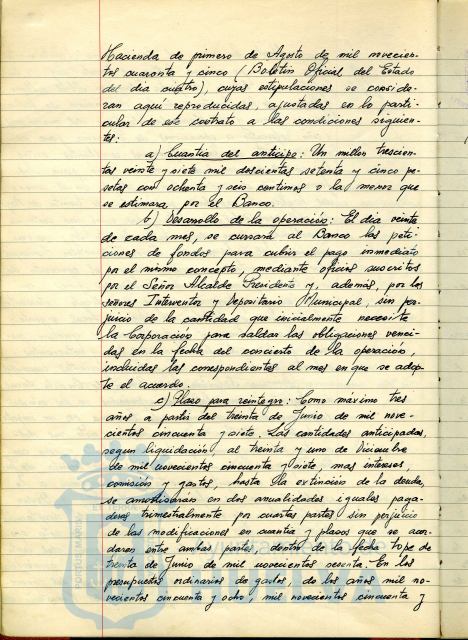 Hacienda de primero de Agosto de mil novecien-
tos cuarenta y cinco (Boletín Oficial del Estado
del día cuatro), cuyas estipulaciones se conside-
ran aquí reproducidas, ajustadas en lo parti-
cular de este contrato a las condiciones siguien-
tes:
a) Cuantía del anticipo: Un millon trescien-
tas veinte y siete mil doscientas setenta y cinco pe-
setas con ochenta y seis centimos o la menor que
se estimara, por el Banco.
b) Desarrollo de la operación: El día veinte
de cada mes, se cursará al Banco las peti-
ciones de fondos para cubrir el pago inmediato
por el mismo concepto, mediante oficios suscritos
por el Señor Alcalde Presidente y, además, por los
señores Interventor y Depositario Municipal, sin per-
juicio de la cantidad que inicialmente necesite
la Corporación para saldar las obligaciones venci-
das en la fecha del concierto de la operación,
incluidas las correspondientes al mes en que se adop-
te el acuerdo.
c) Plazo para reintegro: Como máximo tres
años a partir del treinta de Junio de mil nove-
cientos cincuenta y siete. Las cantidades anticipadas,
segun liquidación al treinta y uno de Diciembre
de mil novecientos cincuenta y siete, mas intereses,
comisión y gastos, hasta la extinción de la deuda,
se amortizarán en dos anualidades iguales paga-
deras trimestralmente por cuartas partes sin perjuicio
de las modificaciones en cuantía y plazos que se acor-
daren entre ambas partes, dentro de la fecha tope de
treinta de Junio de mil novecientos sesenta. En los
presupuestos ordinarios de gastos, de los años mil no-
vecientos cincuenta y ocho, mil novecientos cincuenta y